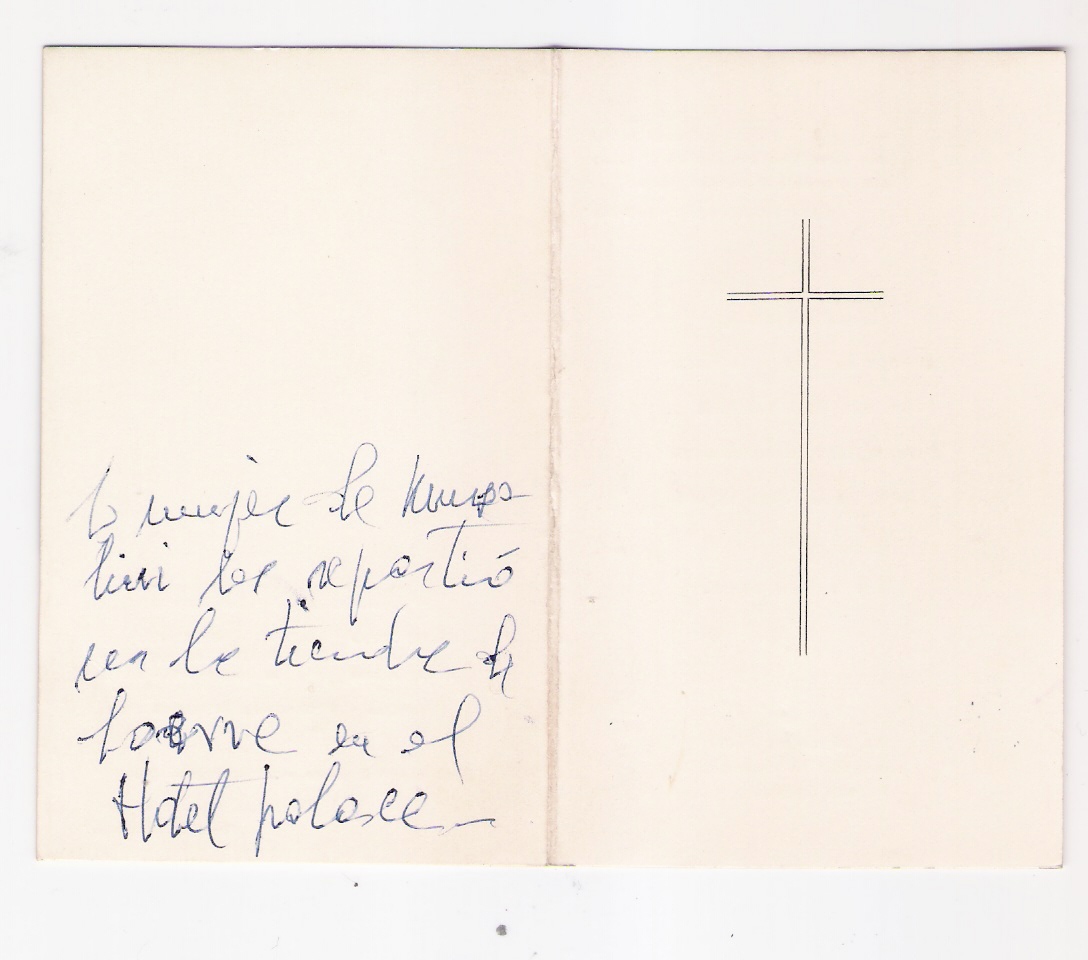 la mujer de Musso
lini las repartió
en la tienda de
Loewe en el
Hotel palace